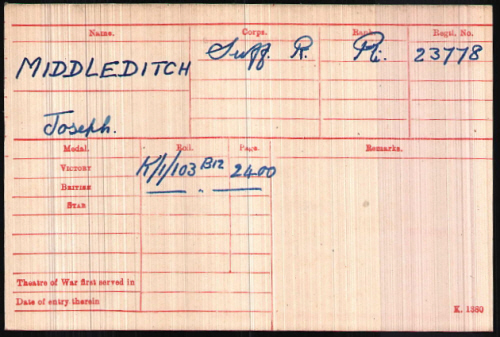 Name. Corps. Rank. Regtl. No.
MIDDLEDITCH Suff. R. Pte. 23778
Joseph.
Medal. Roll. Page. Remarks.
VICTORY K/1/103 B12 2400
BRITISH — " —
STAR
Theatre of War first served in
Date of entry therein
K. 1380